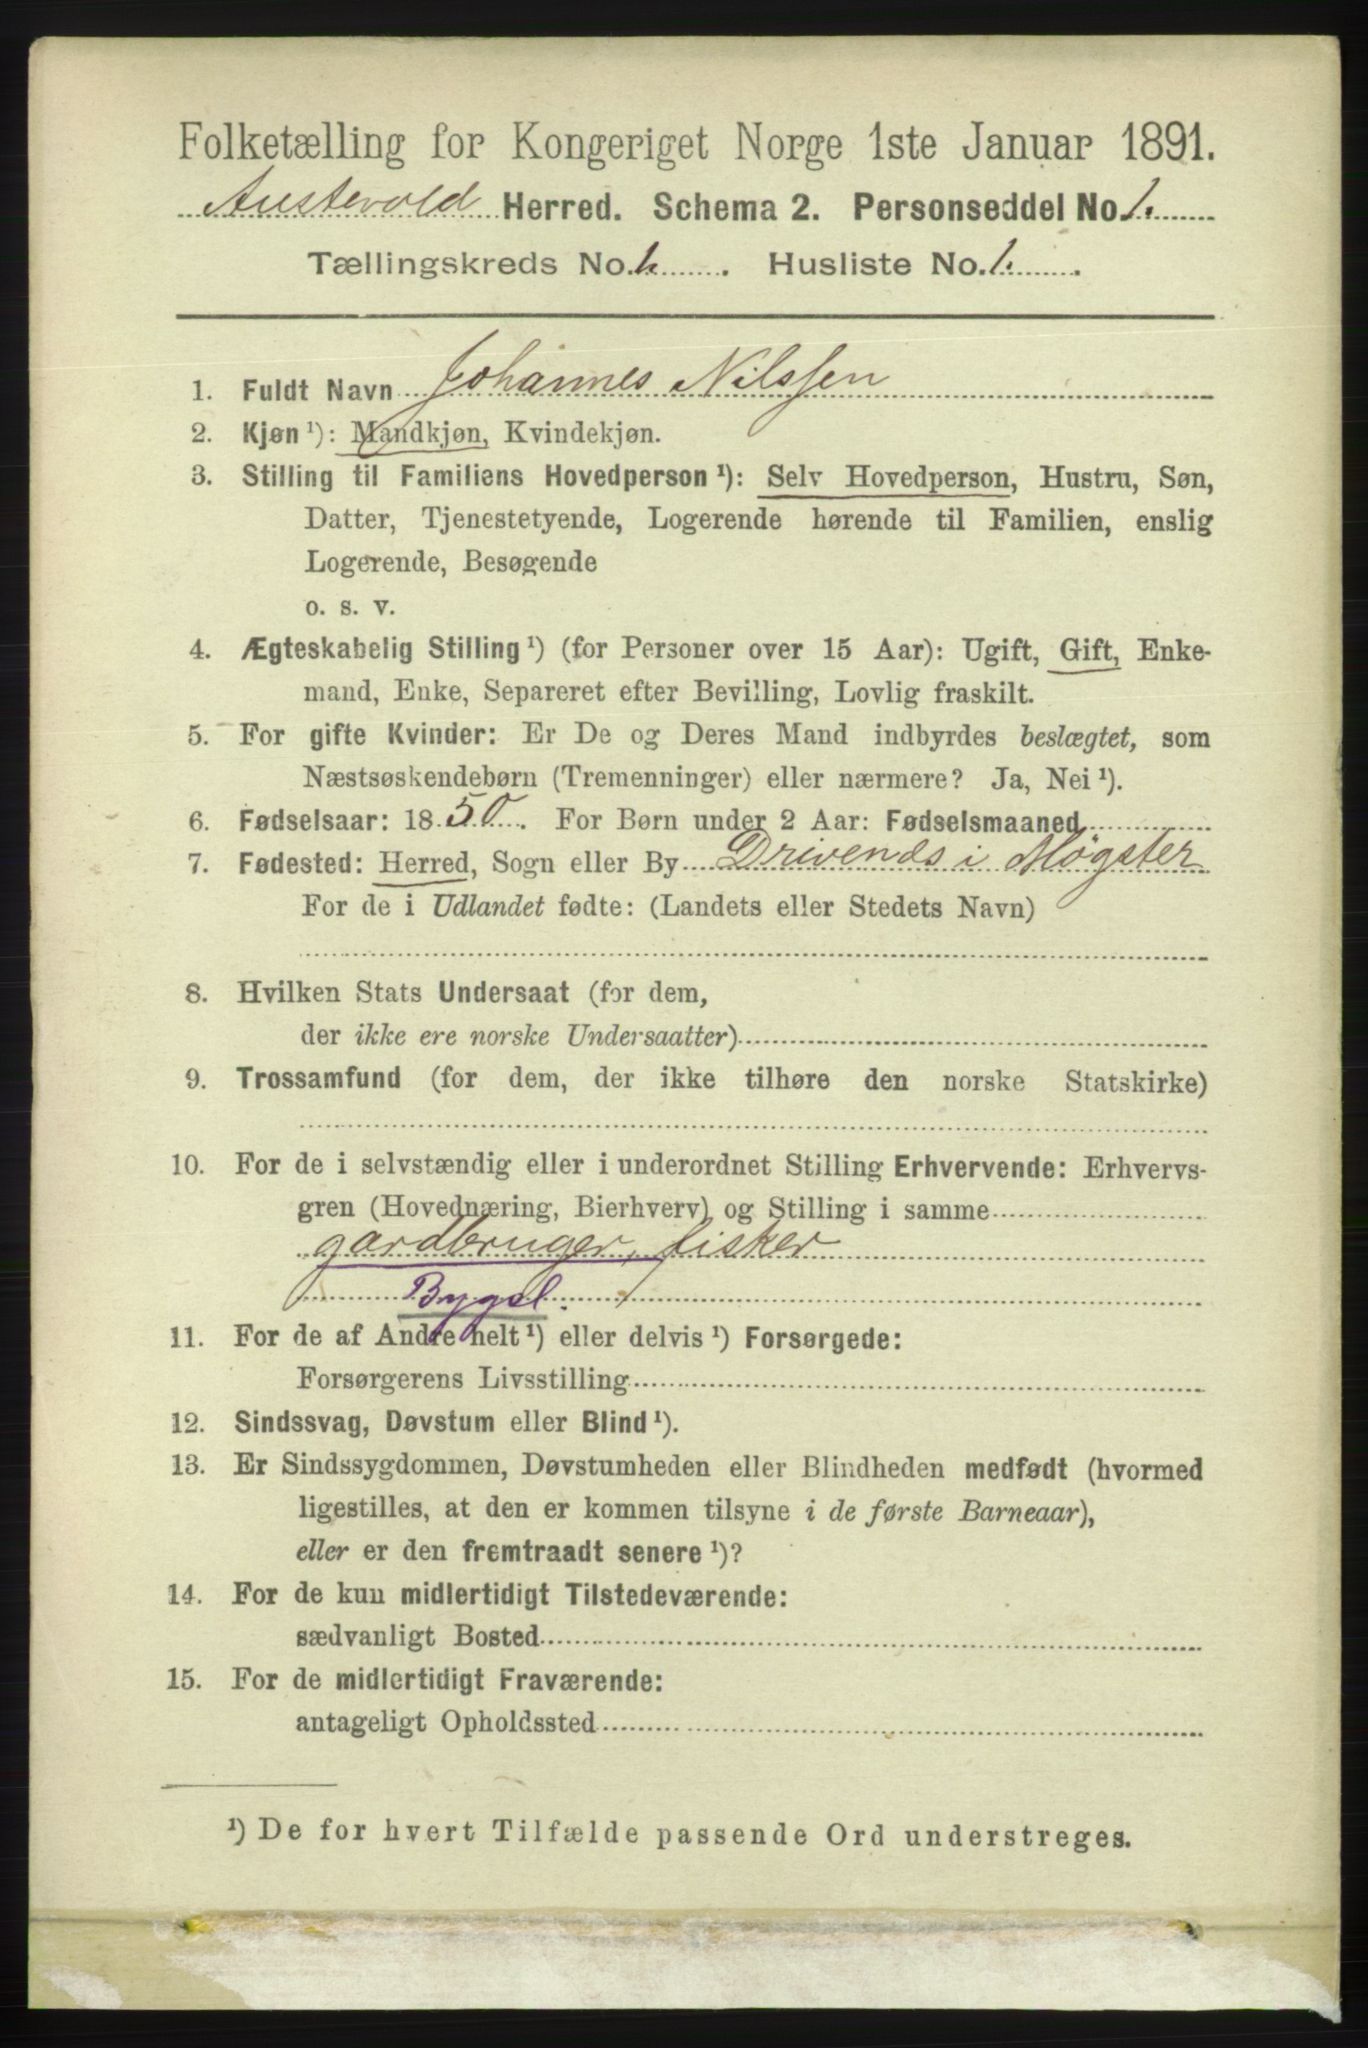 Folketælling for Kongeriget Norge 1ste Januar 1891.
Austevold Herred. Schema 2. Personseddel No. 1.
Tællingskreds No. . Husliste No. 1. .
1. Fuldt Navn Johannes Nilssen
2. Kjøn ¹): Mandkjøn, Kvindekjøn.
3. Stilling til Familiens Hovedperson ¹): Selv Hovedperson, Hustru, Søn,
Datter, Tjenestetyende, Logerende hørende til Familien, enslig
Logerende, Besøgende
o. s. v.
4. Ægteskabelig Stilling ¹) (for Personer over 15 Aar): Ugift, Gift, Enke-
mand, Enke, Separeret efter Bevilling, Lovlig fraskilt.
5. For gifte Kvinder: Er De og Deres Mand indbyrdes beslægtet, som
Næstsøskendebørn (Tremenninger) eller nærmere? Ja, Nei ¹).
6. Fødselsaar: 1850. For Børn under 2 Aar: Fødselsmaaned
7. Fødested: Herred, Sogn eller By Drivenæs i Møgster
For de i Udlandet fødte: (Landets eller Stedets Navn)
8. Hvilken Stats Undersaat (for dem,
der ikke ere norske Undersaatter)
9. Trossamfund (for dem, der ikke tilhøre den norske Statskirke)
10. For de i selvstændig eller i underordnet Stilling Erhvervende: Erhvervs-
gren (Hovednæring, Bierhverv) og Stilling i samme
gardbruger, fisker
Bygsl.
11. For de af Andre helt ¹) eller delvis ¹) Forsørgede:
Forsørgerens Livsstilling
12. Sindssvag, Døvstum eller Blind ¹).
13. Er Sindssygdommen, Døvstumheden eller Blindheden medfødt (hvormed
ligestilles, at den er kommen tilsyne i de første Barneaar),
eller er den fremtraadt senere ¹)?
14. For de kun midlertidigt Tilstedeværende:
sædvanligt Bosted
15. For de midlertidigt Fraværende:
antageligt Opholdssted
¹) De for hvert Tilfælde passende Ord understreges.